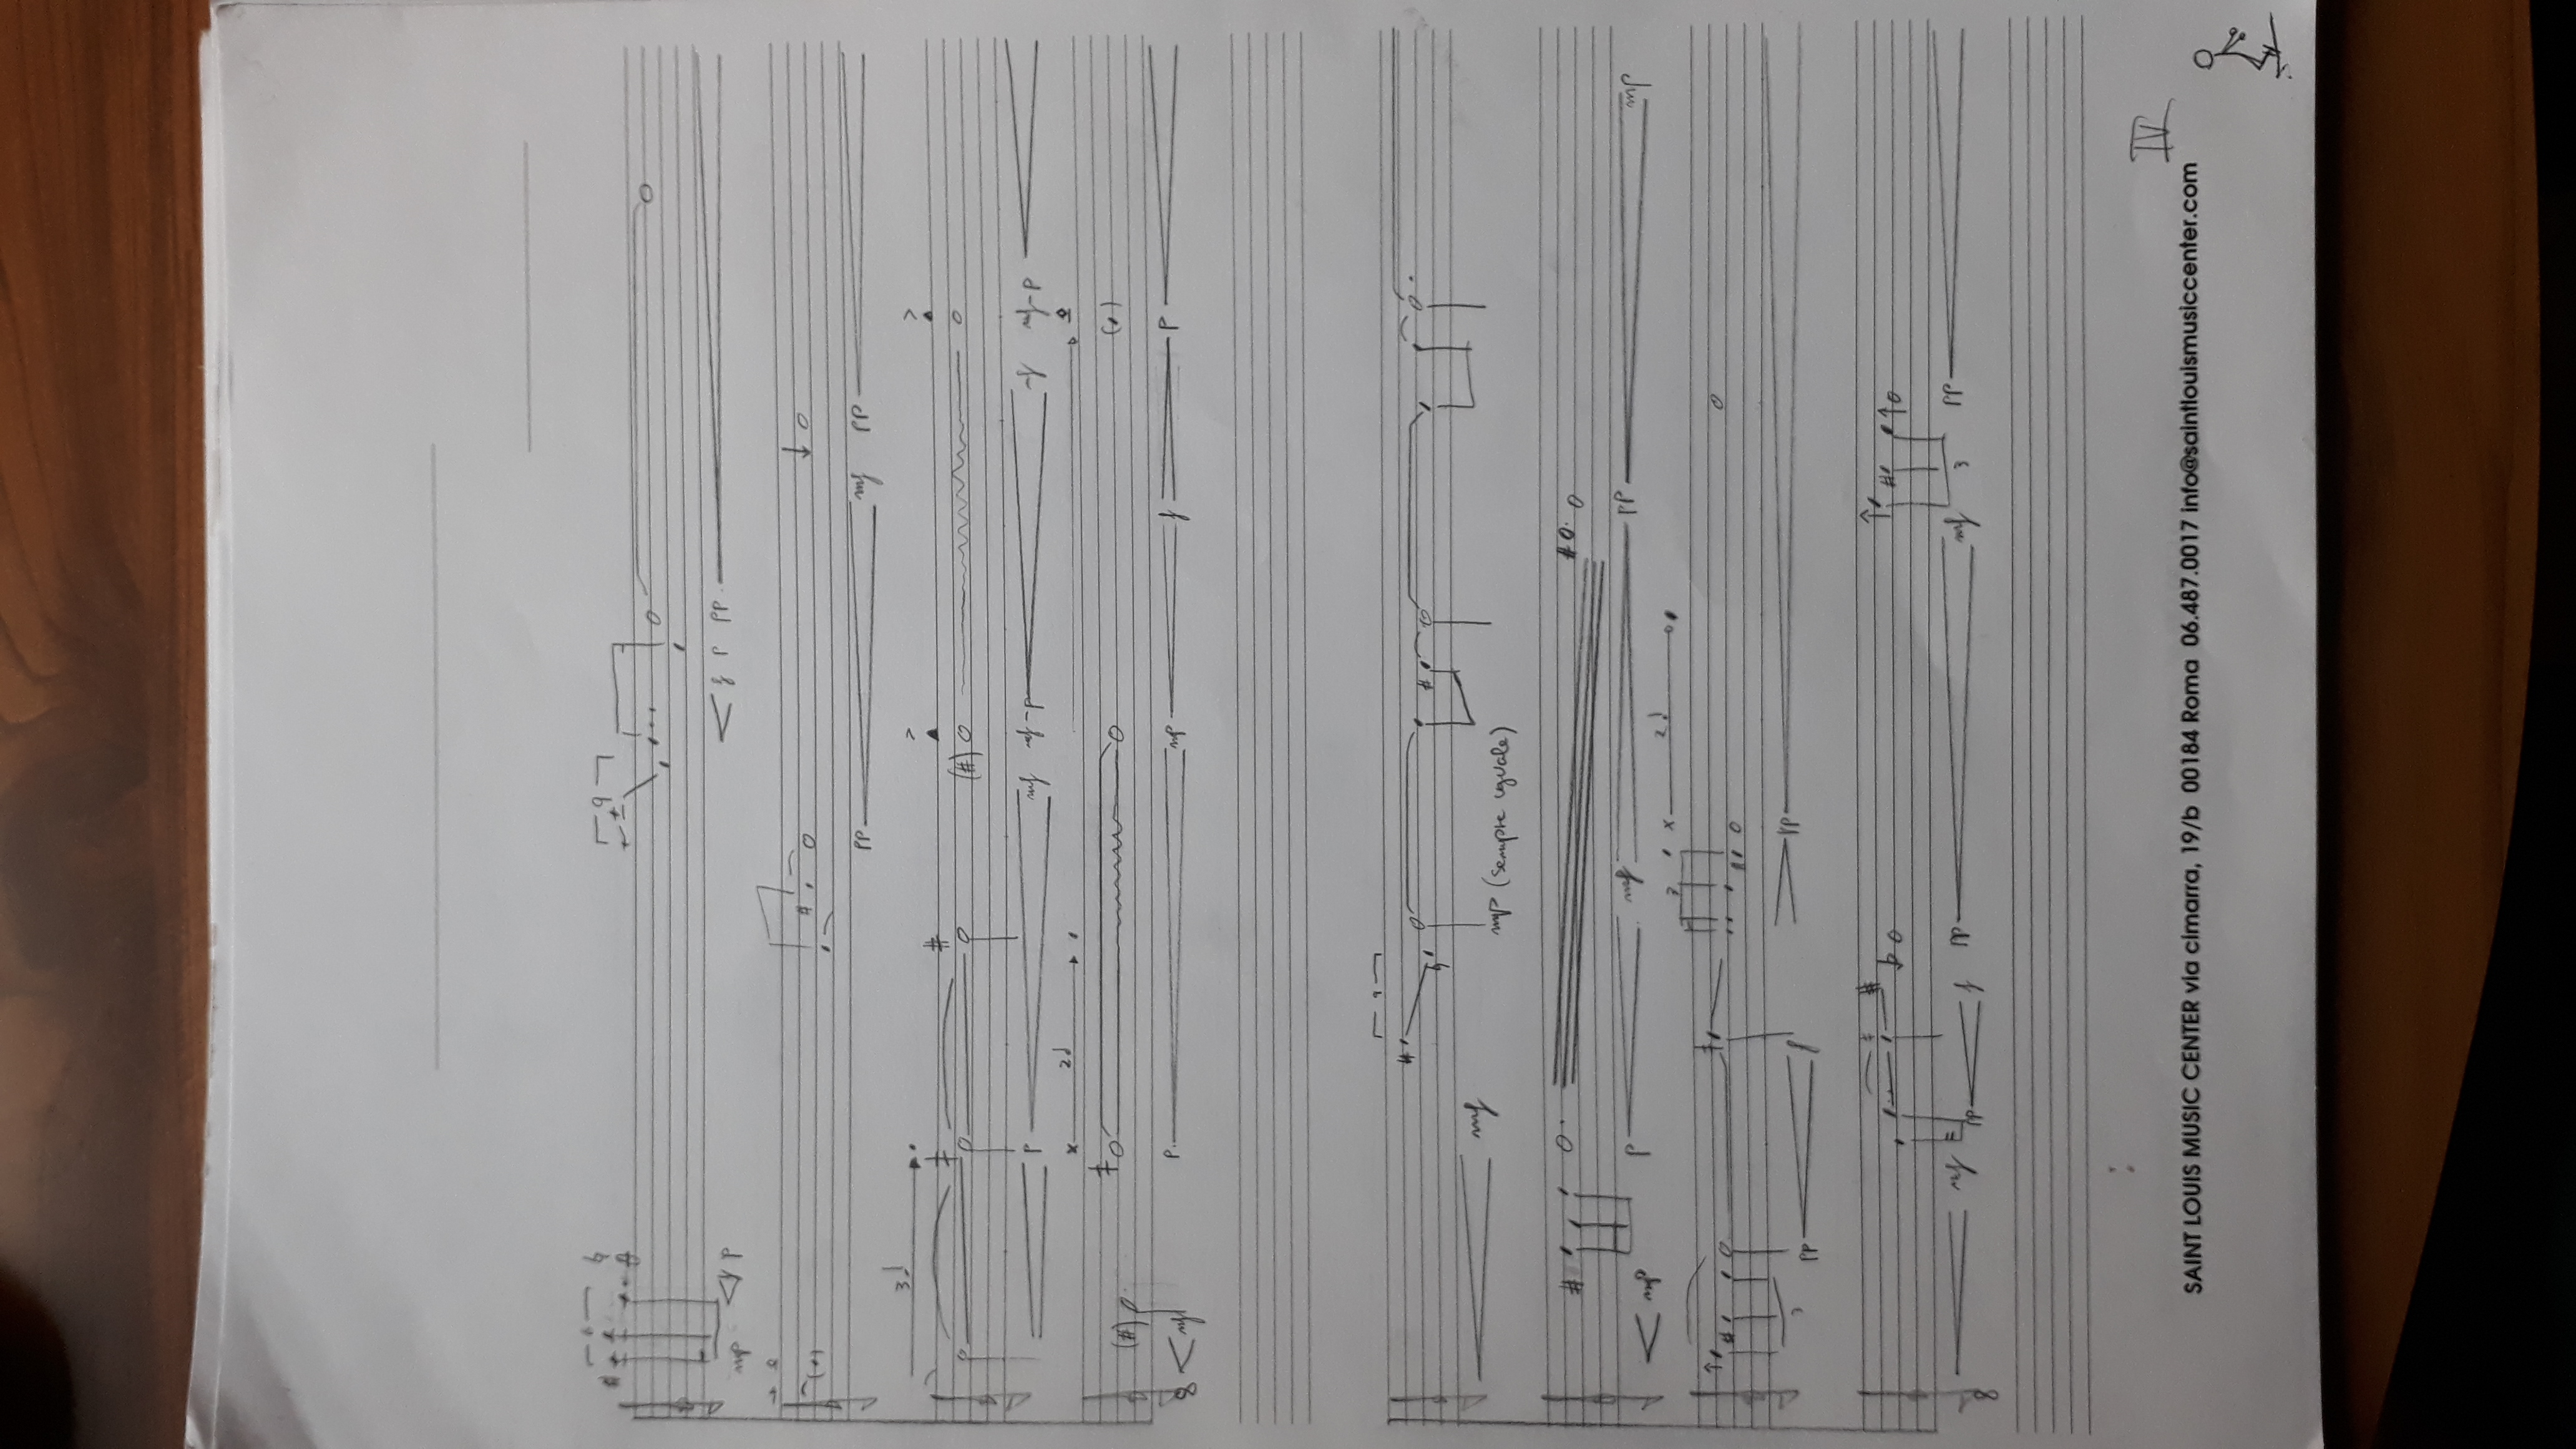 6
9
mp f p
f p pp
pp mf pp
3
p mf mf-p f mf-p
2
(#) (#)
8 mf
p mp f p
mp (sempre uguale)
mf
mf p mf pp mf
3 2
3
pp f pp
8 mf pp f pp mf 3 pp
IV
SAINT LOUIS MUSIC CENTER via cimarra, 19/b 00184 Roma 06.487.0017 info@saintlouismusiccenter.com